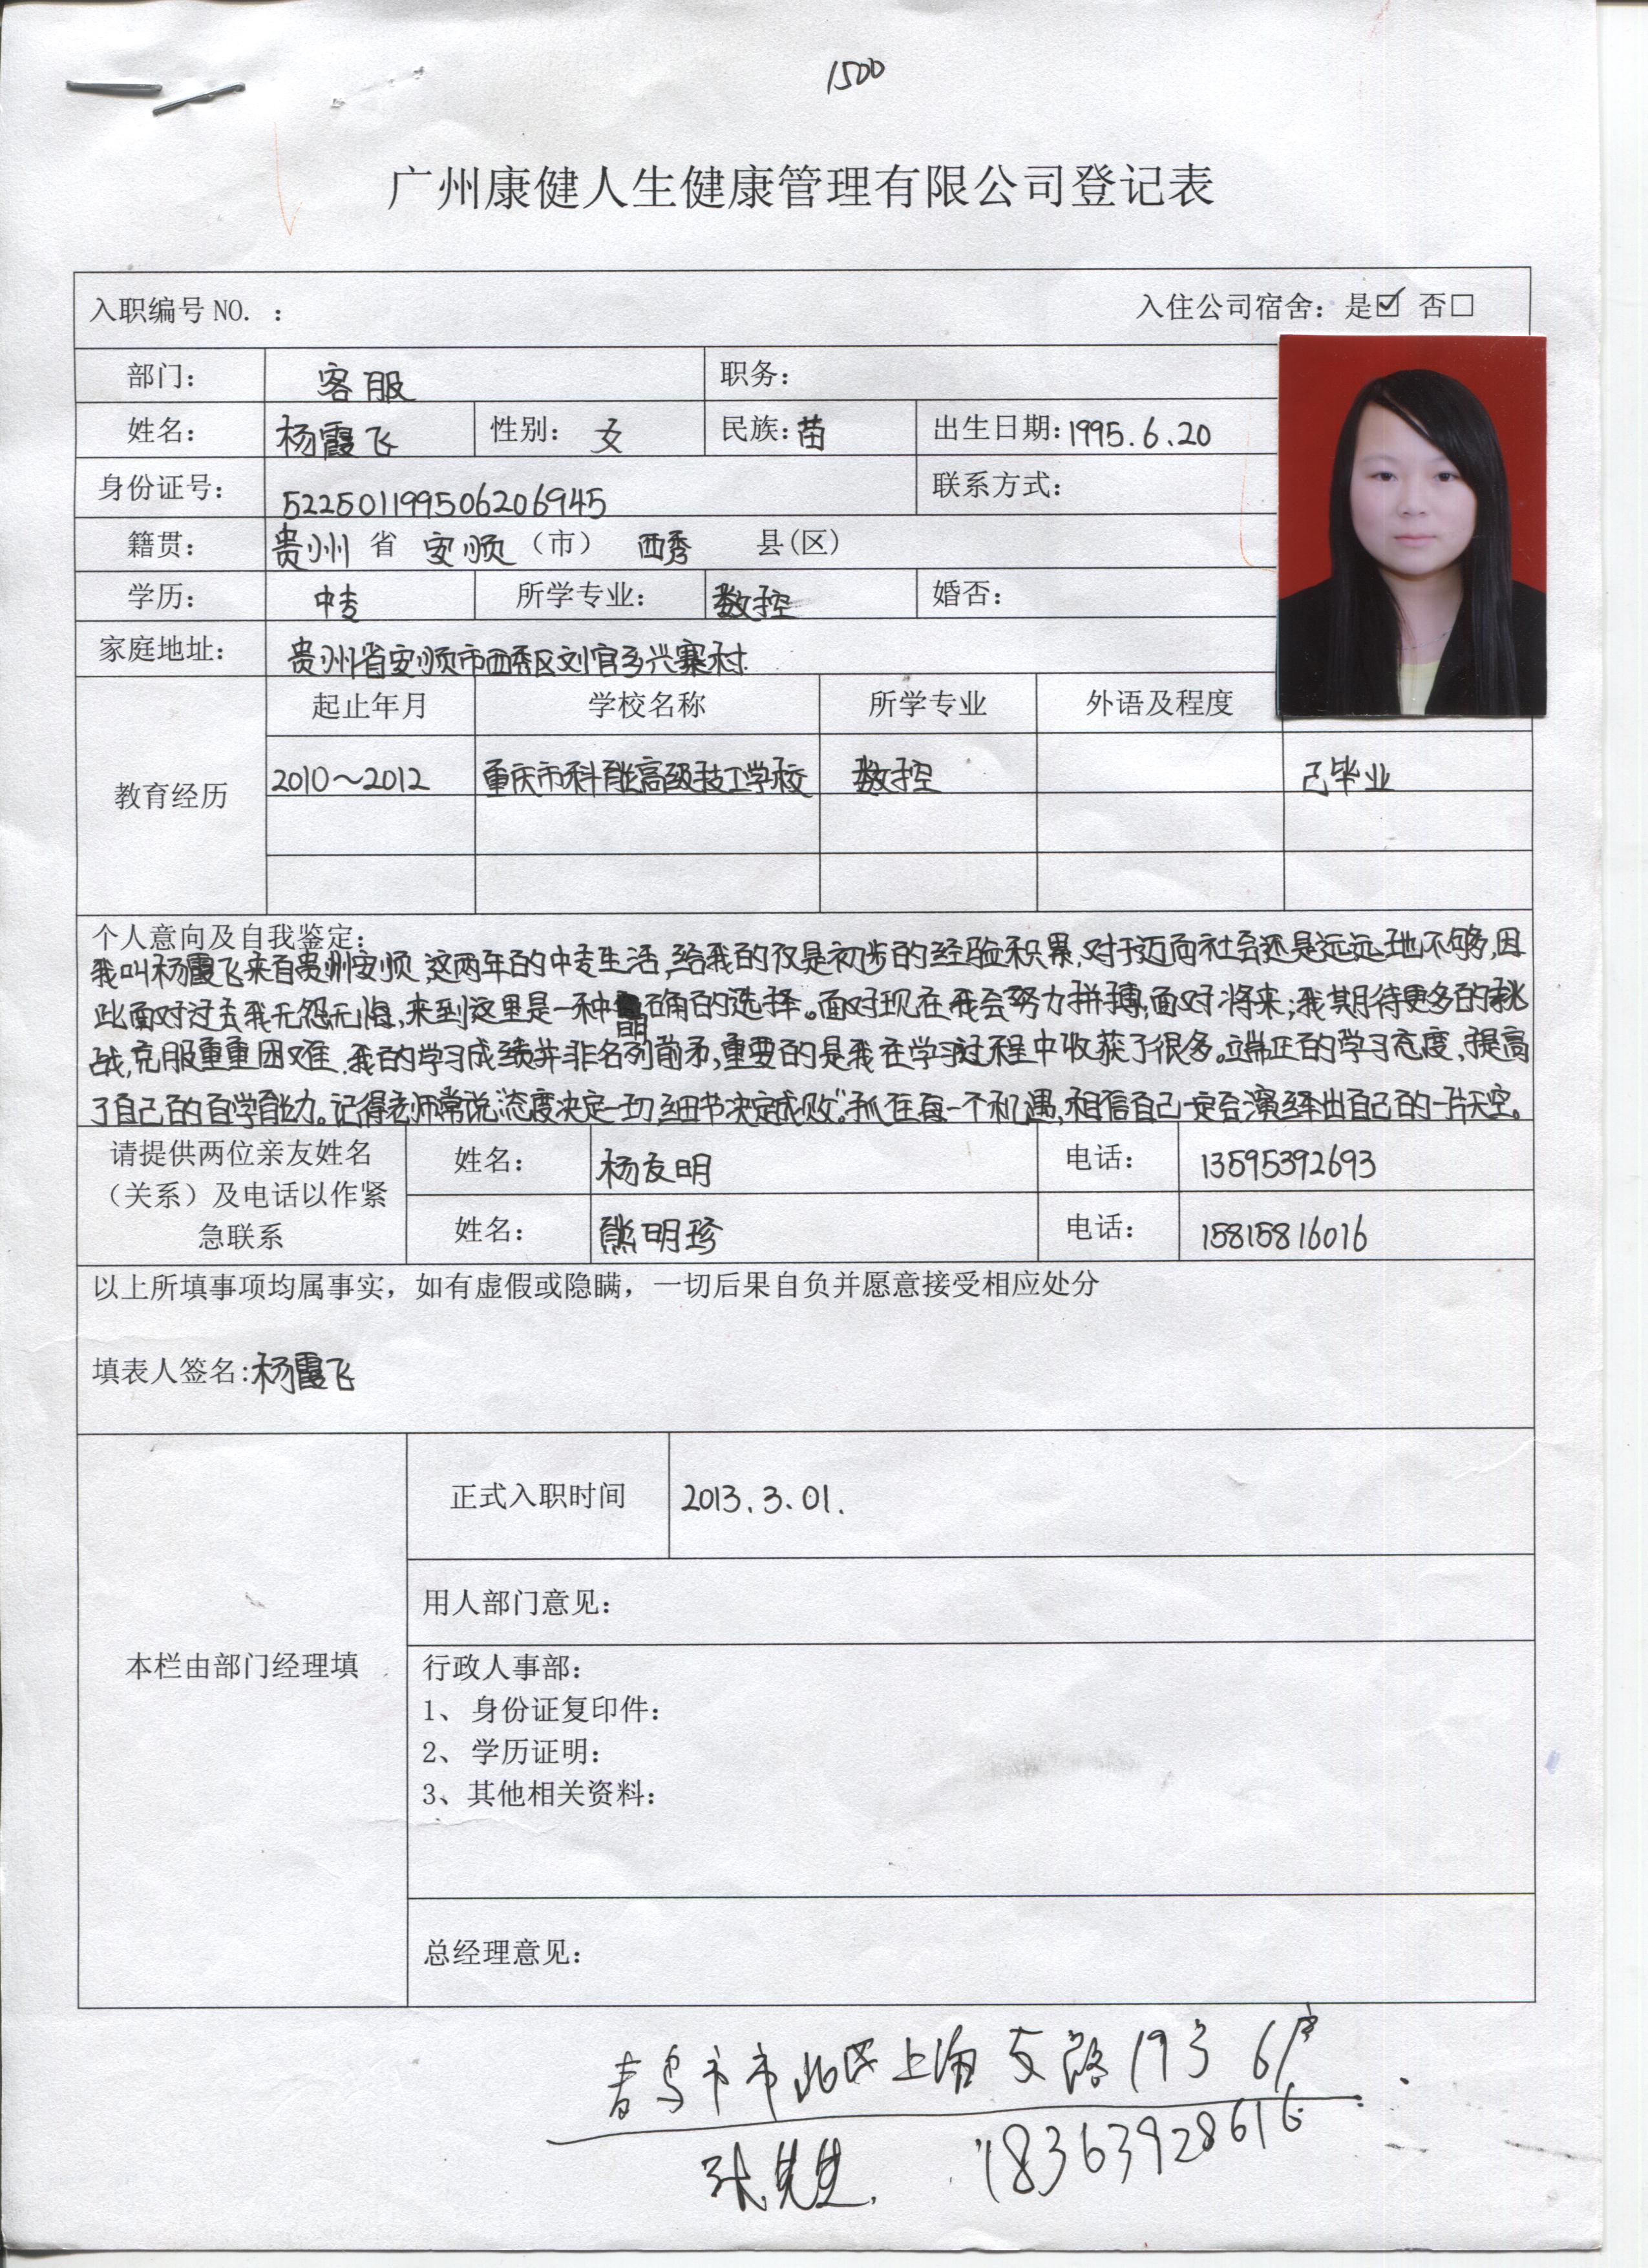 1500
广州康健人生健康管理有限公司登记表
入职编号 NO. ： 入住公司宿舍：是☑ 否□
部门： 客服 职务：
姓名： 杨霞飞 性别： 女 民族：苗 出生日期：1995.6.20
身份证号： 522501199506206945 联系方式：
籍贯： 贵州 省 安顺 （市） 西秀 县(区)
学历： 中专 所学专业： 数控 婚否：
家庭地址： 贵州省安顺市西秀区刘官乡兴寨村
教育经历 起止年月 学校名称 所学专业 外语及程度
2010～2012 重庆市科能高级技工学校 数控 已毕业
个人意向及自我鉴定：
我叫杨霞飞来自贵州安顺,这两年的中专生活,给我的仅是初步的经验积累,对于迈向社会还是远远地不够,因
此面对过去我无怨无悔,来到这里是一种明确的选择。面对现在我会努力拼搏,面对将来;我期待更多的挑
战,克服重重困难.我的学习成绩并非名列前矛,重要的是我在学习过程中收获了很多。端正的学习态度,提高
了自己的自学能力。记得老师常说"态度决定一切,细节决定成败"。抓在每一个机遇,相信自己一定会演绎出自己的一片天空。
请提供两位亲友姓名（关系）及电话以作紧急联系 姓名： 杨友明 电话： 13595392693
姓名： 熊明珍 电话： 15815816016
以上所填事项均属事实，如有虚假或隐瞒，一切后果自负并愿意接受相应处分
填表人签名:杨霞飞
本栏由部门经理填 正式入职时间 2013.3.01.
用人部门意见：
行政人事部：
1、 身份证复印件：
2、 学历证明：
3、其他相关资料：
总经理意见：
青岛市市北区上海支路19号 6户
张先生. 18363928616